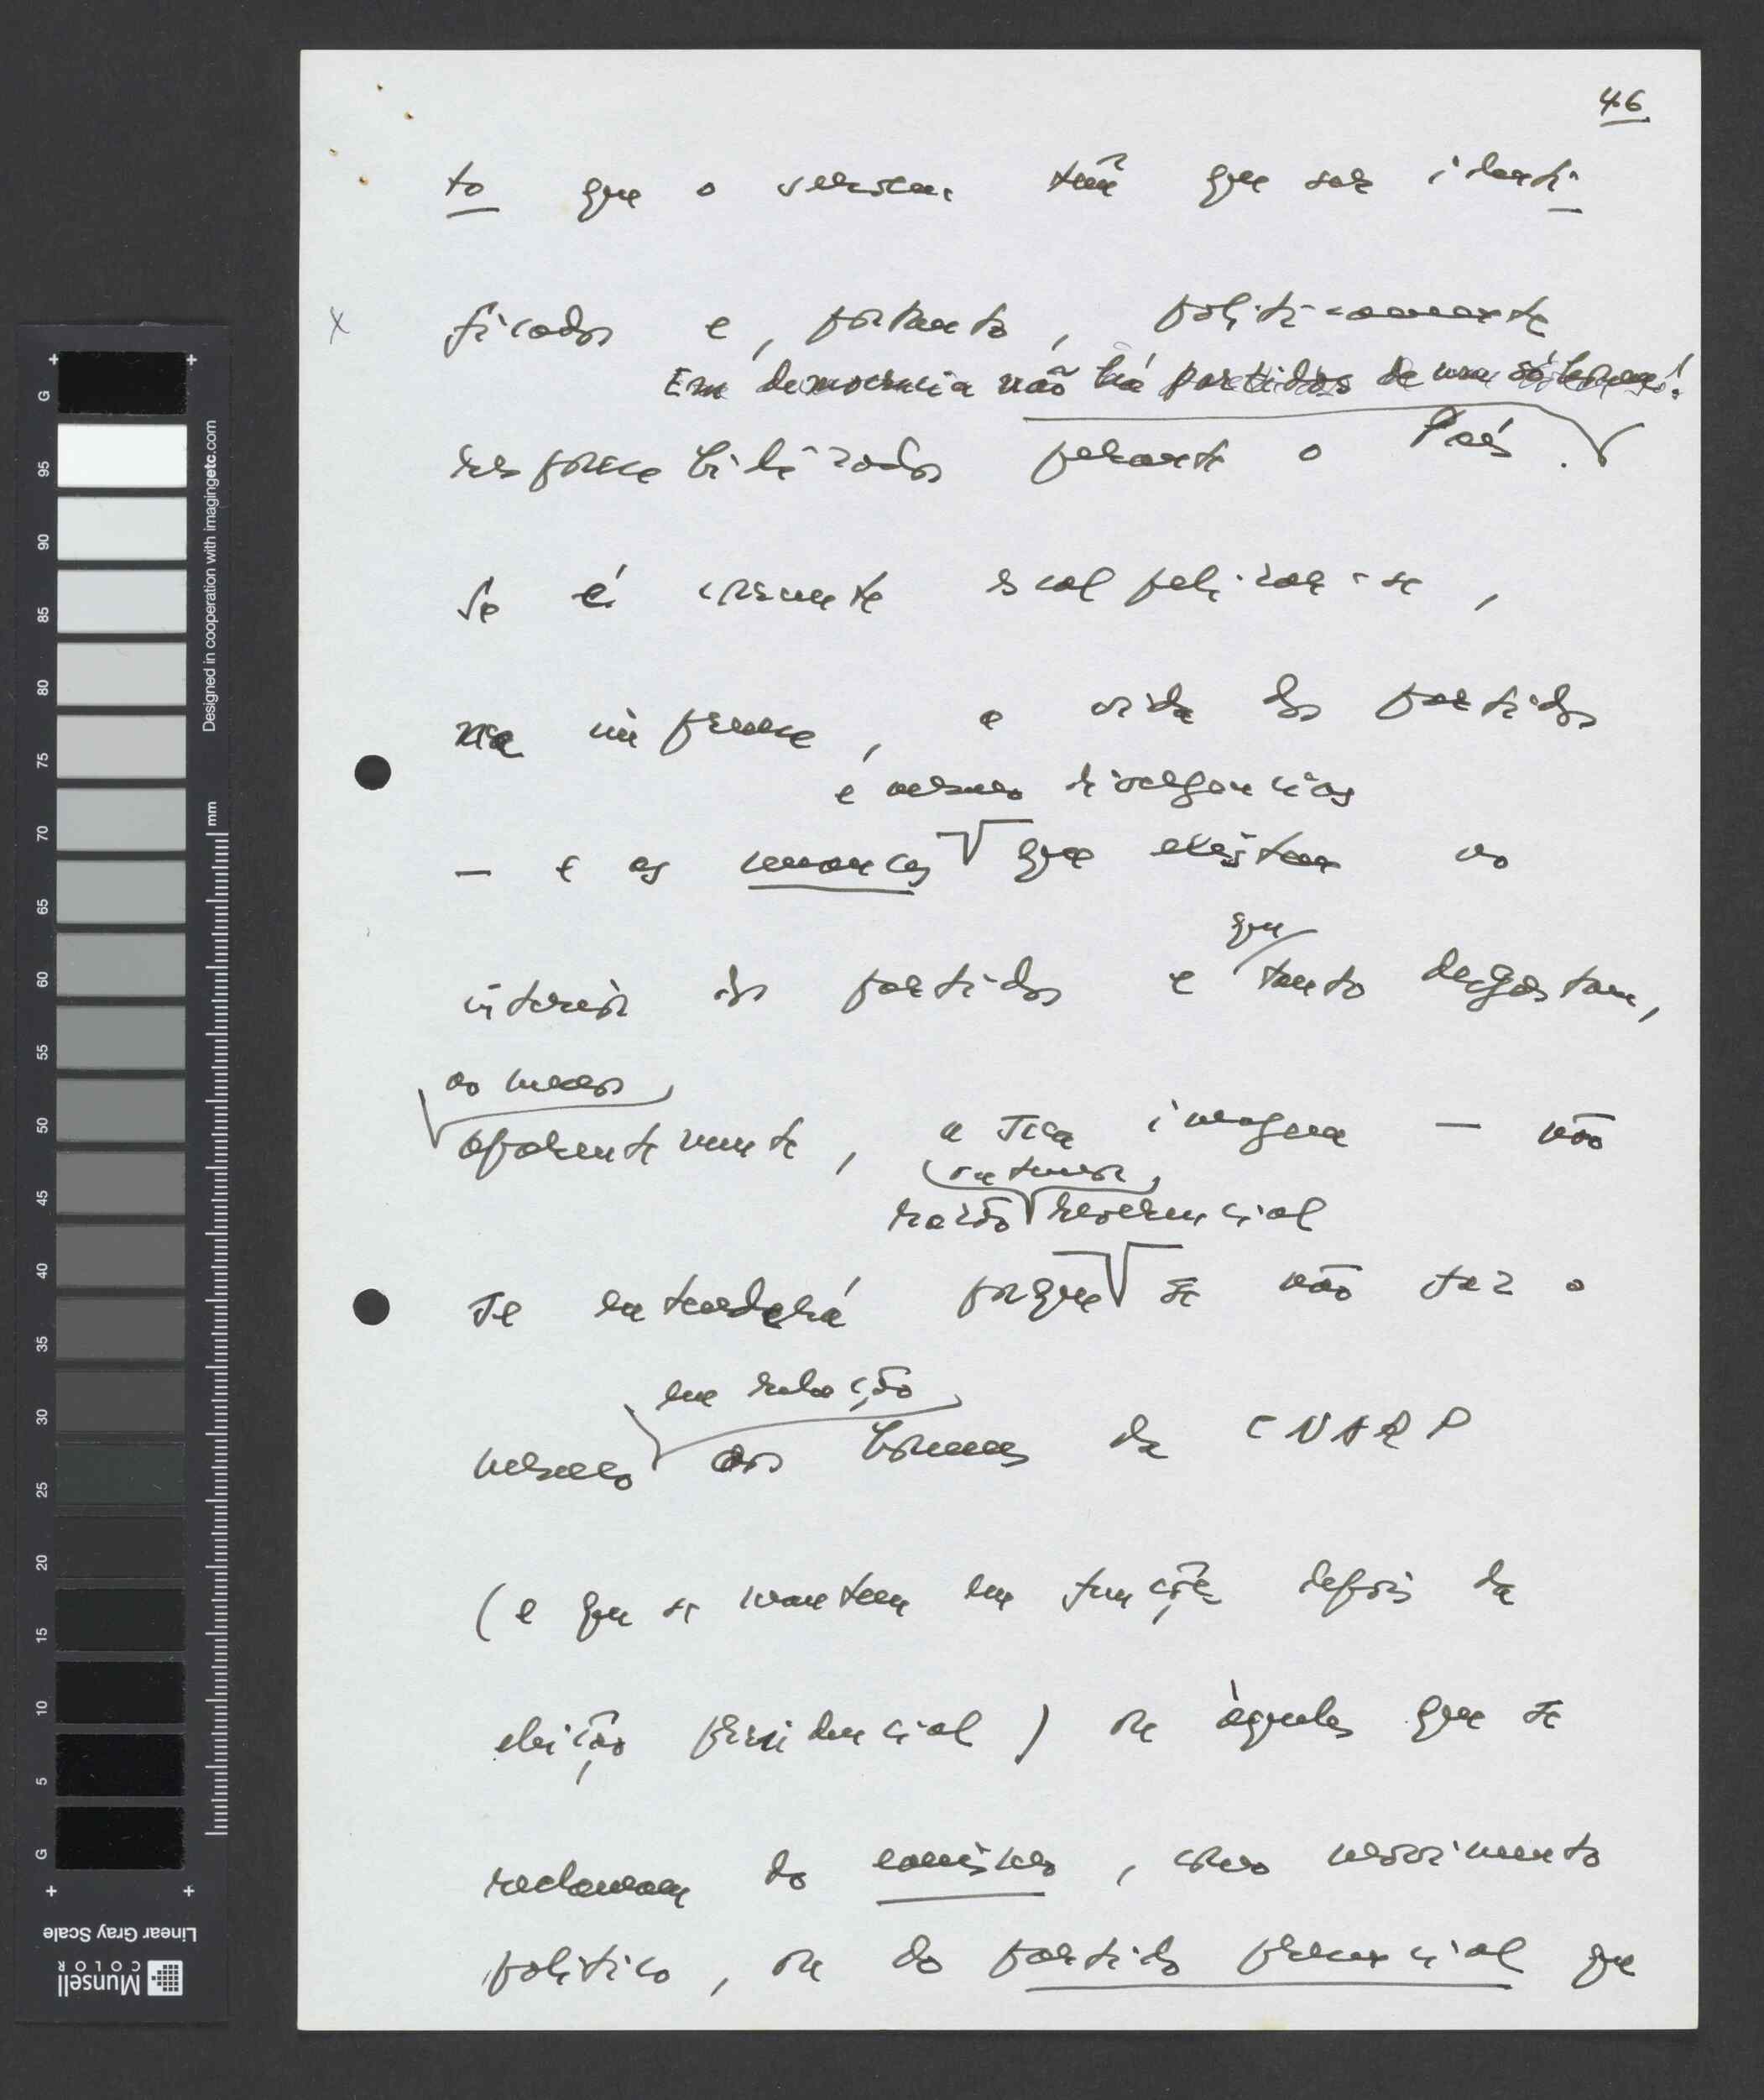 46
to que o servem têm que ser identi-
ficados e, portanto, politicamente
Em democracia não há partidos de um só homem!
responsabilizados perante o País.
Se é corrente escalpelizar-se,
na imprensa, a vida dos partidos
e mesmo divergências
— e as nuances que existem no
que
interior dos partidos e tanto desgastam,
ao menos
aparentemente, a sua imagem — não
ou temor
razão reverencial
se entenderá porque se não faz o
em relação
mesmo aos homens da CNARP
(e que se mantem em função depois da
eleição presidencial) ou àqueles que se
reclamam do eanismo, como movimento
politico, ou do partido presidencial que
G 95 90 85 80 75 70 65 60 55 50 45 40 35 30 25 20 15 10 5 G
mm
Designed in cooperation with imagingetc.com
Linear Gray Scale
Munsell
COLOR